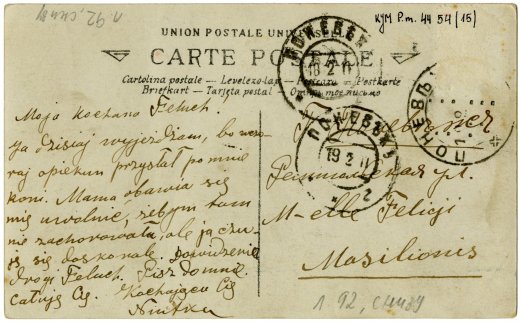 л 92, снизу
КУМ Р.m. 44 54 (15)
UNION POSTALE UNIVERSELLE
CARTE POSTALE
Cartolina postale — Levelezo-lap — Postkarte
Briefkart — Tarjeta postal — Открытое письмо
ПОНЕВѢЖЪ
18 2 11
ПОНЕВѢЖЪ
19 2 11
2
ПОНЕВѢЖЪ
Moja kochana Feluch.
Ja dzisiaj wyjeżdżam, bo wczo
raj opiekun przysłał po mnie
koni. Mama obawia się
mię uwolnić, żebym tam
nie zachorowała, ale ja czu-
ję się doskonale. Dowidzenia
droga Feluch. Pisz do mnie.
Całuję Cię. Kochająca Cię
Niutka
ул.
M-elle Felicji
Masilionis
л. 92, снизу